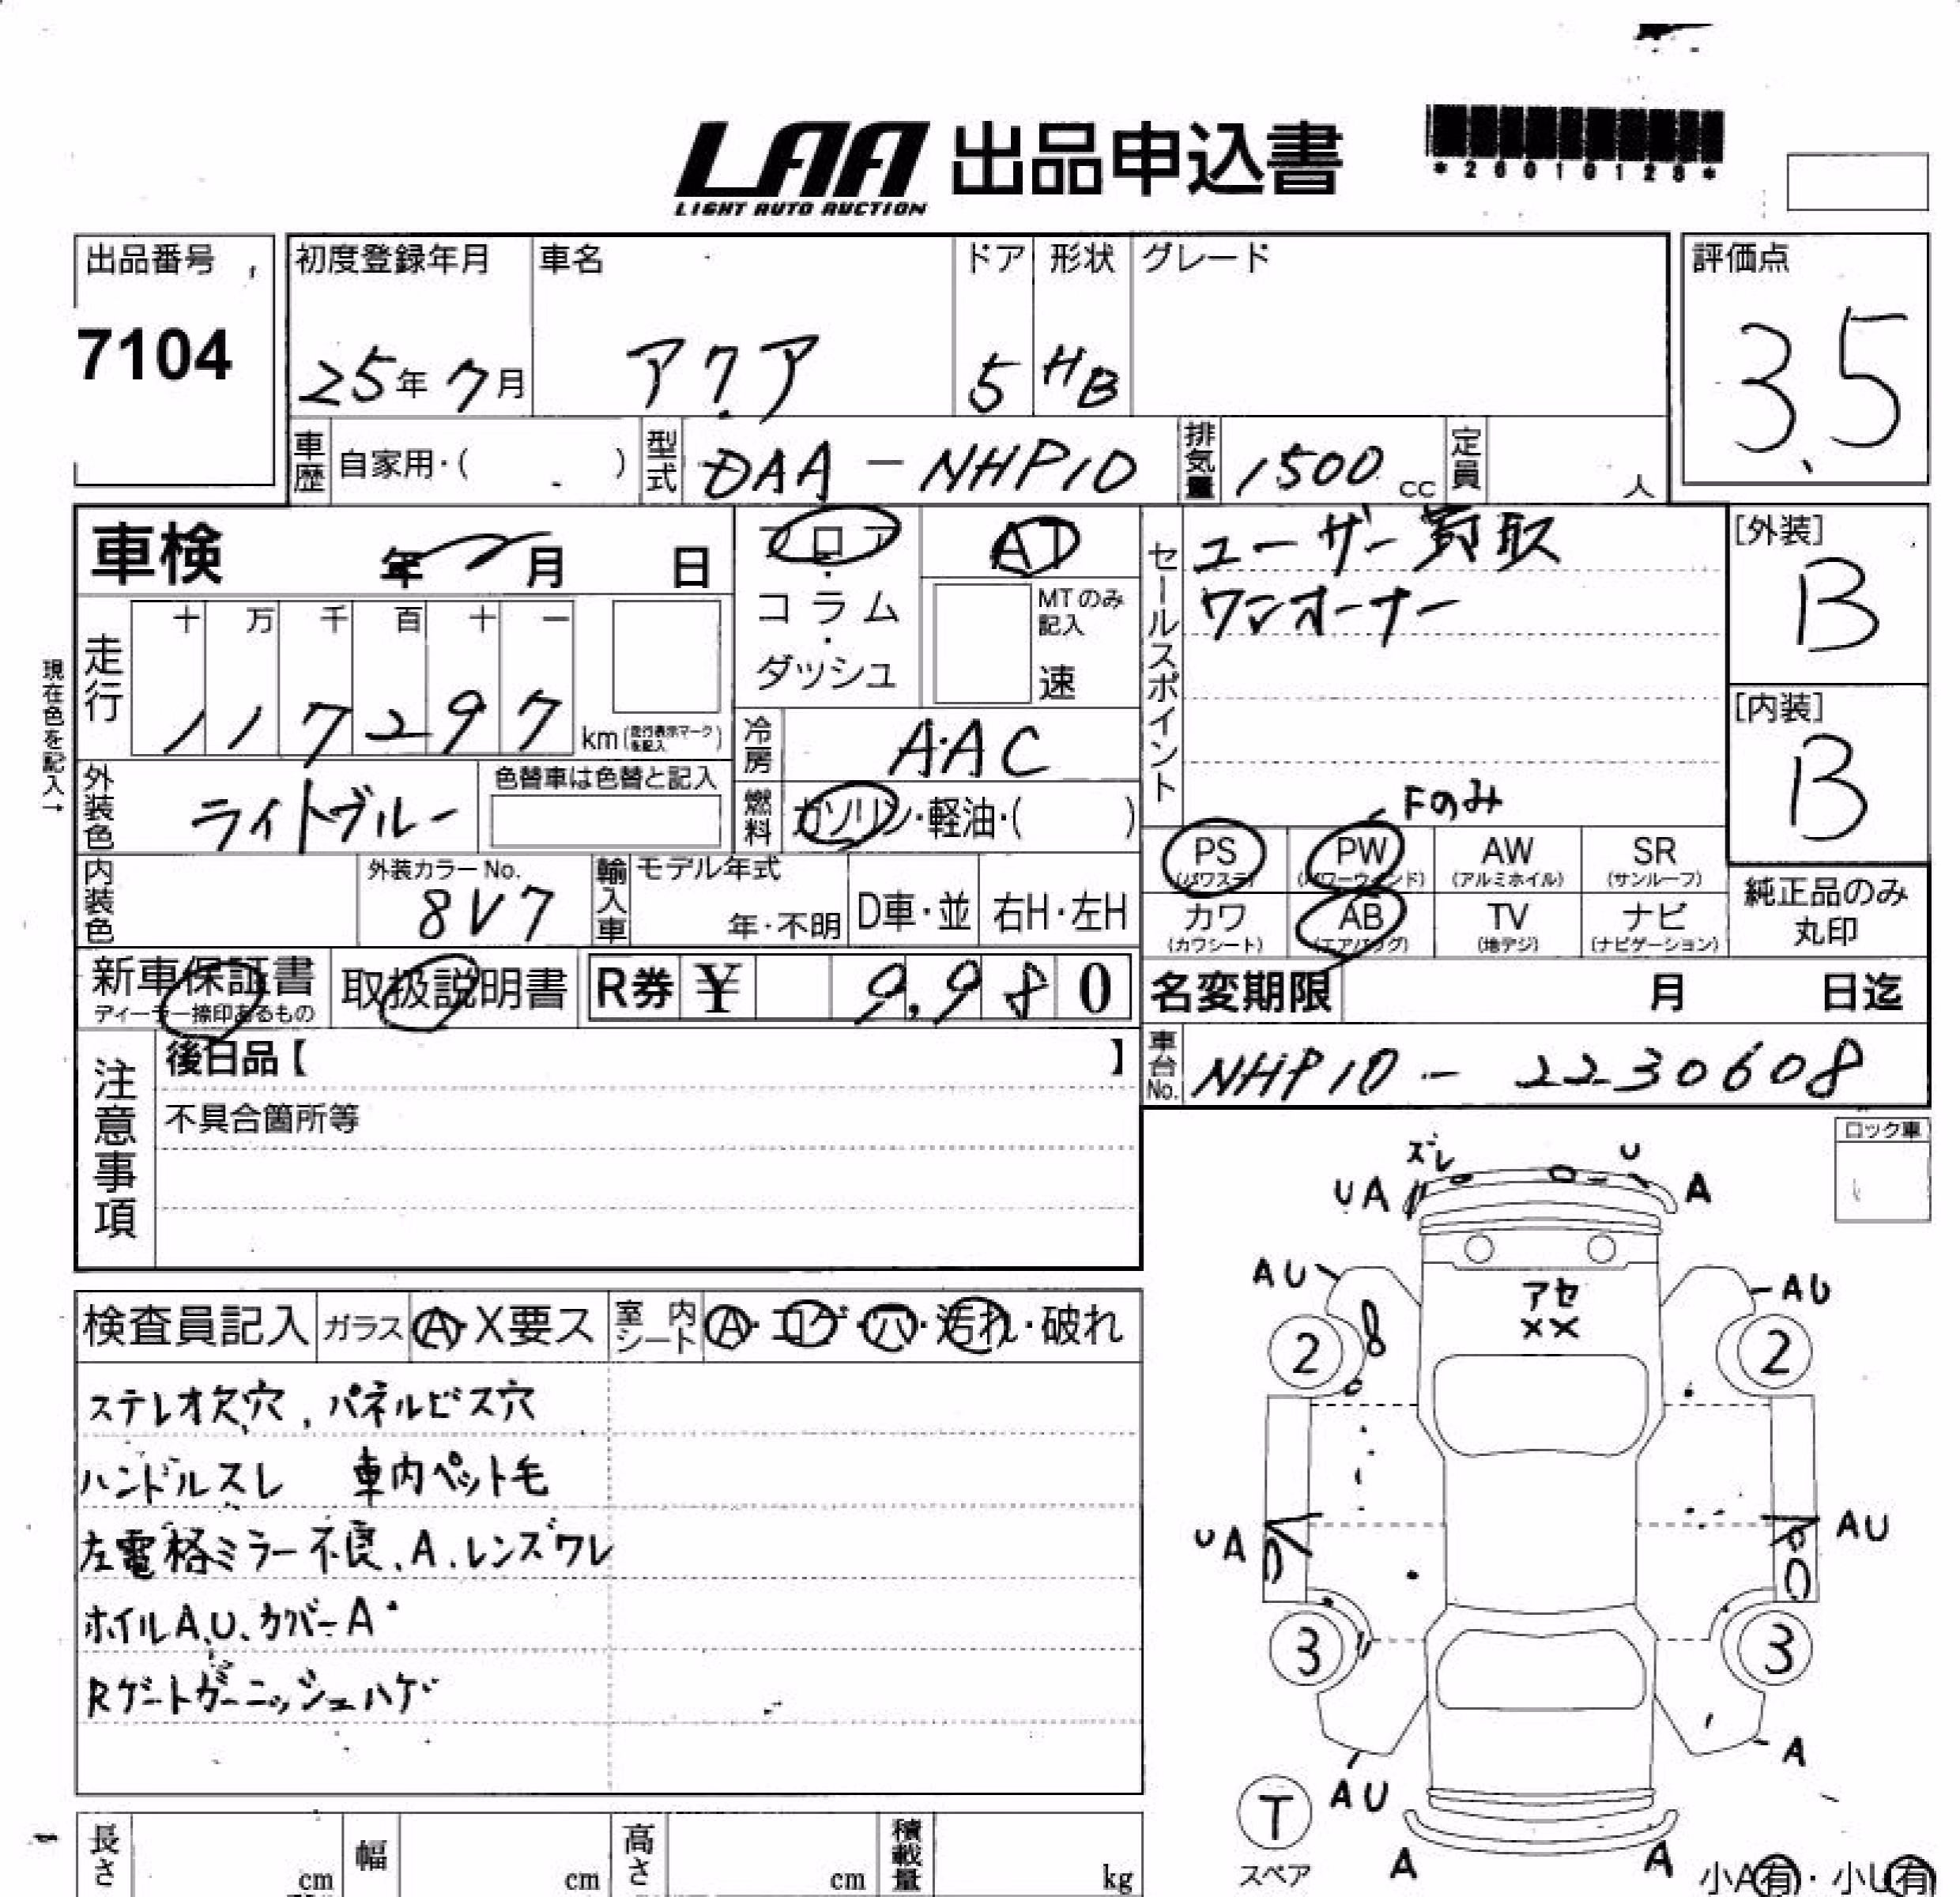 LAA 出品申込書
LIGHT AUTO AUCTION
*26010128*
出品番号
7104
初度登録年月
25年7月
車名
アクア
ドア
5
形状
HB
グレード
評価点
3.5
車歴 自家用・( )
型式 DAA-NHP10
排気量 1500 cc
定員 人
車検 年 月 日
フロア・コラム・ダッシュ
AT
MTのみ記入
速
セールスポイント
ユーザー買取
ワンオーナー
[外装]
B
[内装]
B
現在色を記入→
走行
十 万 千 百 十 一
1 1 7 2 9 7 km(走行表示マークを記入)
冷房 AAC
外装色 ライトブルー
色替車は色替と記入
燃料 ガソリン・軽油・( )
Fのみ
PS (パワステ)
PW (パワーウィンド)
AW (アルミホイル)
SR (サンルーフ)
カワ (カワシート)
AB (エアバッグ)
TV (地デジ)
ナビ (ナビゲーション)
純正品のみ丸印
内装色
外装カラーNo.
8V7
輸入車
モデル年式
年・不明
D車・並
右H・左H
新車保証書
ディーラー捺印あるもの
取扱説明書
R券 ¥ 9,980
名変期限 月 日迄
車台No. NHP10-2230608
注意事項
後日品【 】
不具合箇所等
ロック車
ズレ U
UA A
AU AU
アセ
××
2 2
UA AU
3 3
AU A
T
スペア
A A
小A有・小U有
検査員記入 ガラス A・X要ス 室内シート A・コゲ・穴・汚れ・破れ
ステレオ欠穴、パネルビス穴
ハンドルスレ 車内ペット毛
左電格ミラー不良、A、レンズワレ
ホイルA、U、カバーA
Rゲートガーニッシュハゲ
長さ cm 幅 cm 高さ cm 積載量 kg